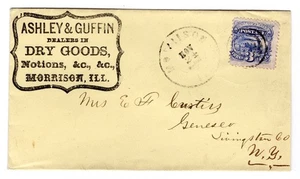 ASHLEY & GUFFIN
DEALERS IN
DRY GOODS,
Notions, &c., &c.,
MORRISON, ILL.
MORRISON
NOV
POSTAGE
3
Mrs E F Curtiss
Geneseo
Livingston Co
N.Y.